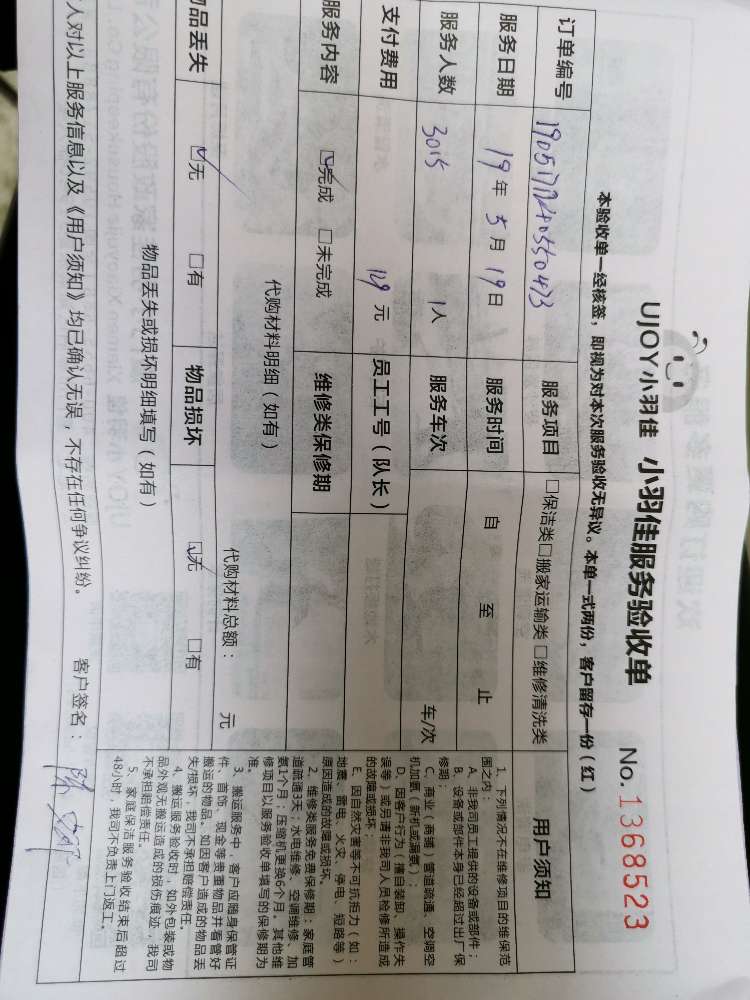 UJOY小羽佳 小羽佳服务验收单 No.1368523
本验收单一经核签，即视为对本次服务验收无异议。本单一式两份，客户留存一份（红）
订单编号 19051717240550473 服务项目 □保洁类□搬家运输类 □维修清洗类
服务日期 19年 5月 19日 服务时间 自 至 止
服务人数 3015 1人 服务车次 车/次
支付费用 129 元 员工工号（队长）
服务内容 ☑完成 □未完成 维修类保修期
代购材料明细（如有） 代购材料总额： 元
物品丢失 ☑无 □有 物品损坏 ☑无 □有
物品丢失或损坏明细填写（如有）
人对以上服务信息以及《用户须知》均已确认无误，不存在任何争议纠纷。 客户签名：陈
用户须知
1、下列情况不在维修项目的维保范
围之内：
A、非我司员工提供的设备或部件；
B、设备或部件本身已经超过出厂保
修期；
C、商业（商铺）管道疏通、空调空
机加氨（新机或漏氨）；
D、因客户行为（擅自装卸、操作失
误等）或另请非我司人员检修所造成
的故障或损坏；
E、因自然灾害等不可抗拒力（如：
地震、雷电、火灾、停电、短路等）
原因造成的故障或损坏。
2、维修类服务免费保修期：家庭管
道疏通3天；水电维修、空调维修、加
氨1个月；压缩机更换6个月。其他维
修项目以服务验收单填写的保修期为
准。
3、搬运服务中，客户应随身保管证
件、首饰、现金等贵重物品并看管好
搬运的物品。如因客户造成的物品丢
失/损坏，我司不承担赔偿责任。
4、搬运服务验收时，如外包装或物
品外观无搬运造成的损伤痕迹，我司
不承担赔偿责任。
5、家庭保洁服务验收结束后超过
48小时，我司不负责上门返工。